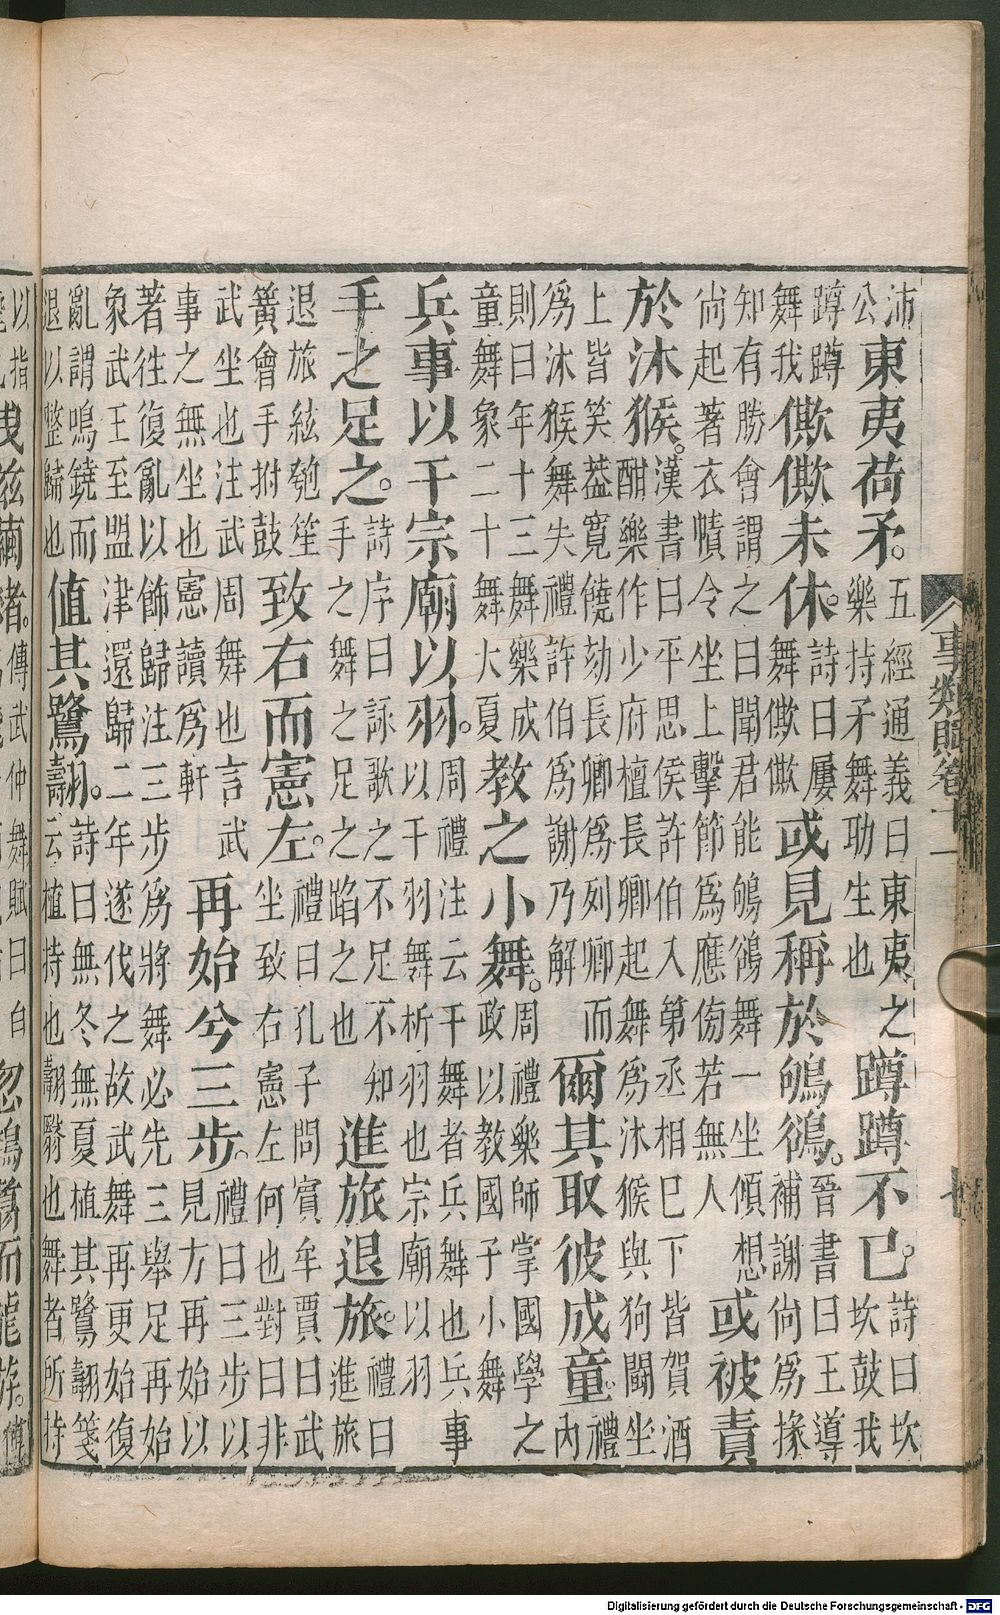 沛
公
東夷荷矛。
五經通義曰東夷之
樂持矛舞助生也
蹲蹲不已。
詩曰坎
坎鼓我
蹲蹲
舞我
僛僛未休。
詩曰屢
舞僛僛
或見稱於鴝鵒。
晉書曰王導
補謝尚爲掾
知有勝會謂之曰聞君能鴝鵒舞一坐傾想
尚起著衣幘令坐上擊節爲應傍若無人
或被責
於沐猴。
漢書曰平思侯許伯入第丞相巳下皆賀酒
酣樂作少府檀長卿起舞爲沐猴與狗鬬坐
上皆笑葢寬饒劾長卿爲列卿而
爲沐猴舞失禮許伯爲謝乃解
爾其取彼成童。
禮
內
則曰年十三舞樂成
童舞象二十舞大夏
教之小舞。
周禮樂師掌國學之
政以教國子小舞
兵事以干宗廟以羽。
周禮注云干舞者兵舞也兵事
以干羽舞析羽也宗廟以羽
手之足之。
詩序曰詠歌之不足不知
手之舞之足之蹈之也
進旅退旅。
禮曰
進旅
退旅絃匏笙
簧會手拊鼓
致右而憲左。
禮曰孔子問賓牟賈曰武
坐致右憲左何也對曰非
武坐也注武周舞也言武
事之無坐也憲讀爲軒
再始兮三步。
禮曰三步以
見方再始以
著往復亂以飾歸注三步爲將舞必先三舉足再始
象武王至盟津還歸二年遂伐之故武舞再更始復
亂謂鳴鐃而
退以整歸也
值其鷺翿。
詩曰無冬無夏植其鷺翿箋
云植持也翿翳也舞者所持
事類賦卷十一
Digitalisierung gefördert durch die Deutsche Forschungsgemeinschaft - DFG